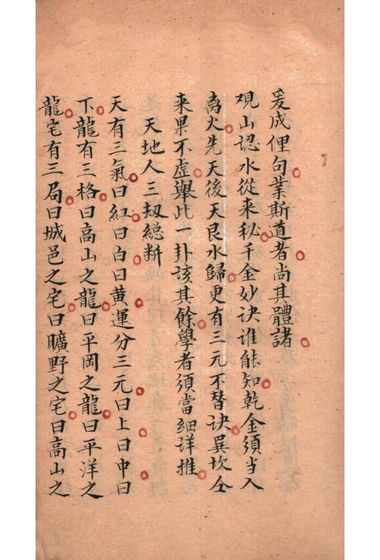 爰成俚句業斯道者尚其體諸
观山認水從来秘千金妙诀谁能知乾金須当入
离火先天後天艮水歸更有三元不替诀巽坎全
来果不虚舉此一卦該其餘學者須當細详推
天地人三刼總斷
天有三氣曰紅曰白曰黄運分三元曰上曰中曰
下龍有三格曰高山之龍曰平岡之龍曰平洋之
龍宅有三局曰城邑之宅曰曠野之宅曰高山之